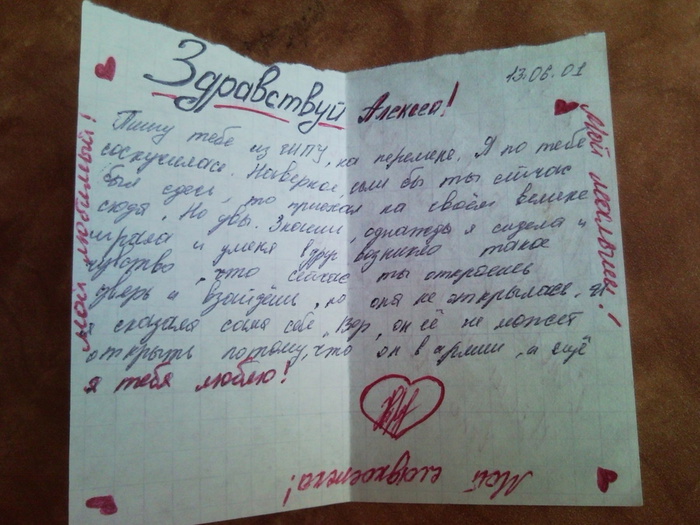 13.06.01
Здравствуй Алекса!
Пишу тебе из ГМПУ, на перемене. Я по тебе
соскучилась. Наверное, если бы ты сейчас
был здесь, то приехал на своём велике
сюда. Но увы. Знаешь, однажды я сидела и
играла и у меня вдруг возникло такое
чувство, что сейчас ты откроешь
дверь и взойдёшь, но она не открылась. Я
я сказала сама себе, Вер, он её не может
открыть потому, что он в армии, и ещё
я тебя люблю!
Мой любимый!
Мой мальчик!
Мой сладкоежка!